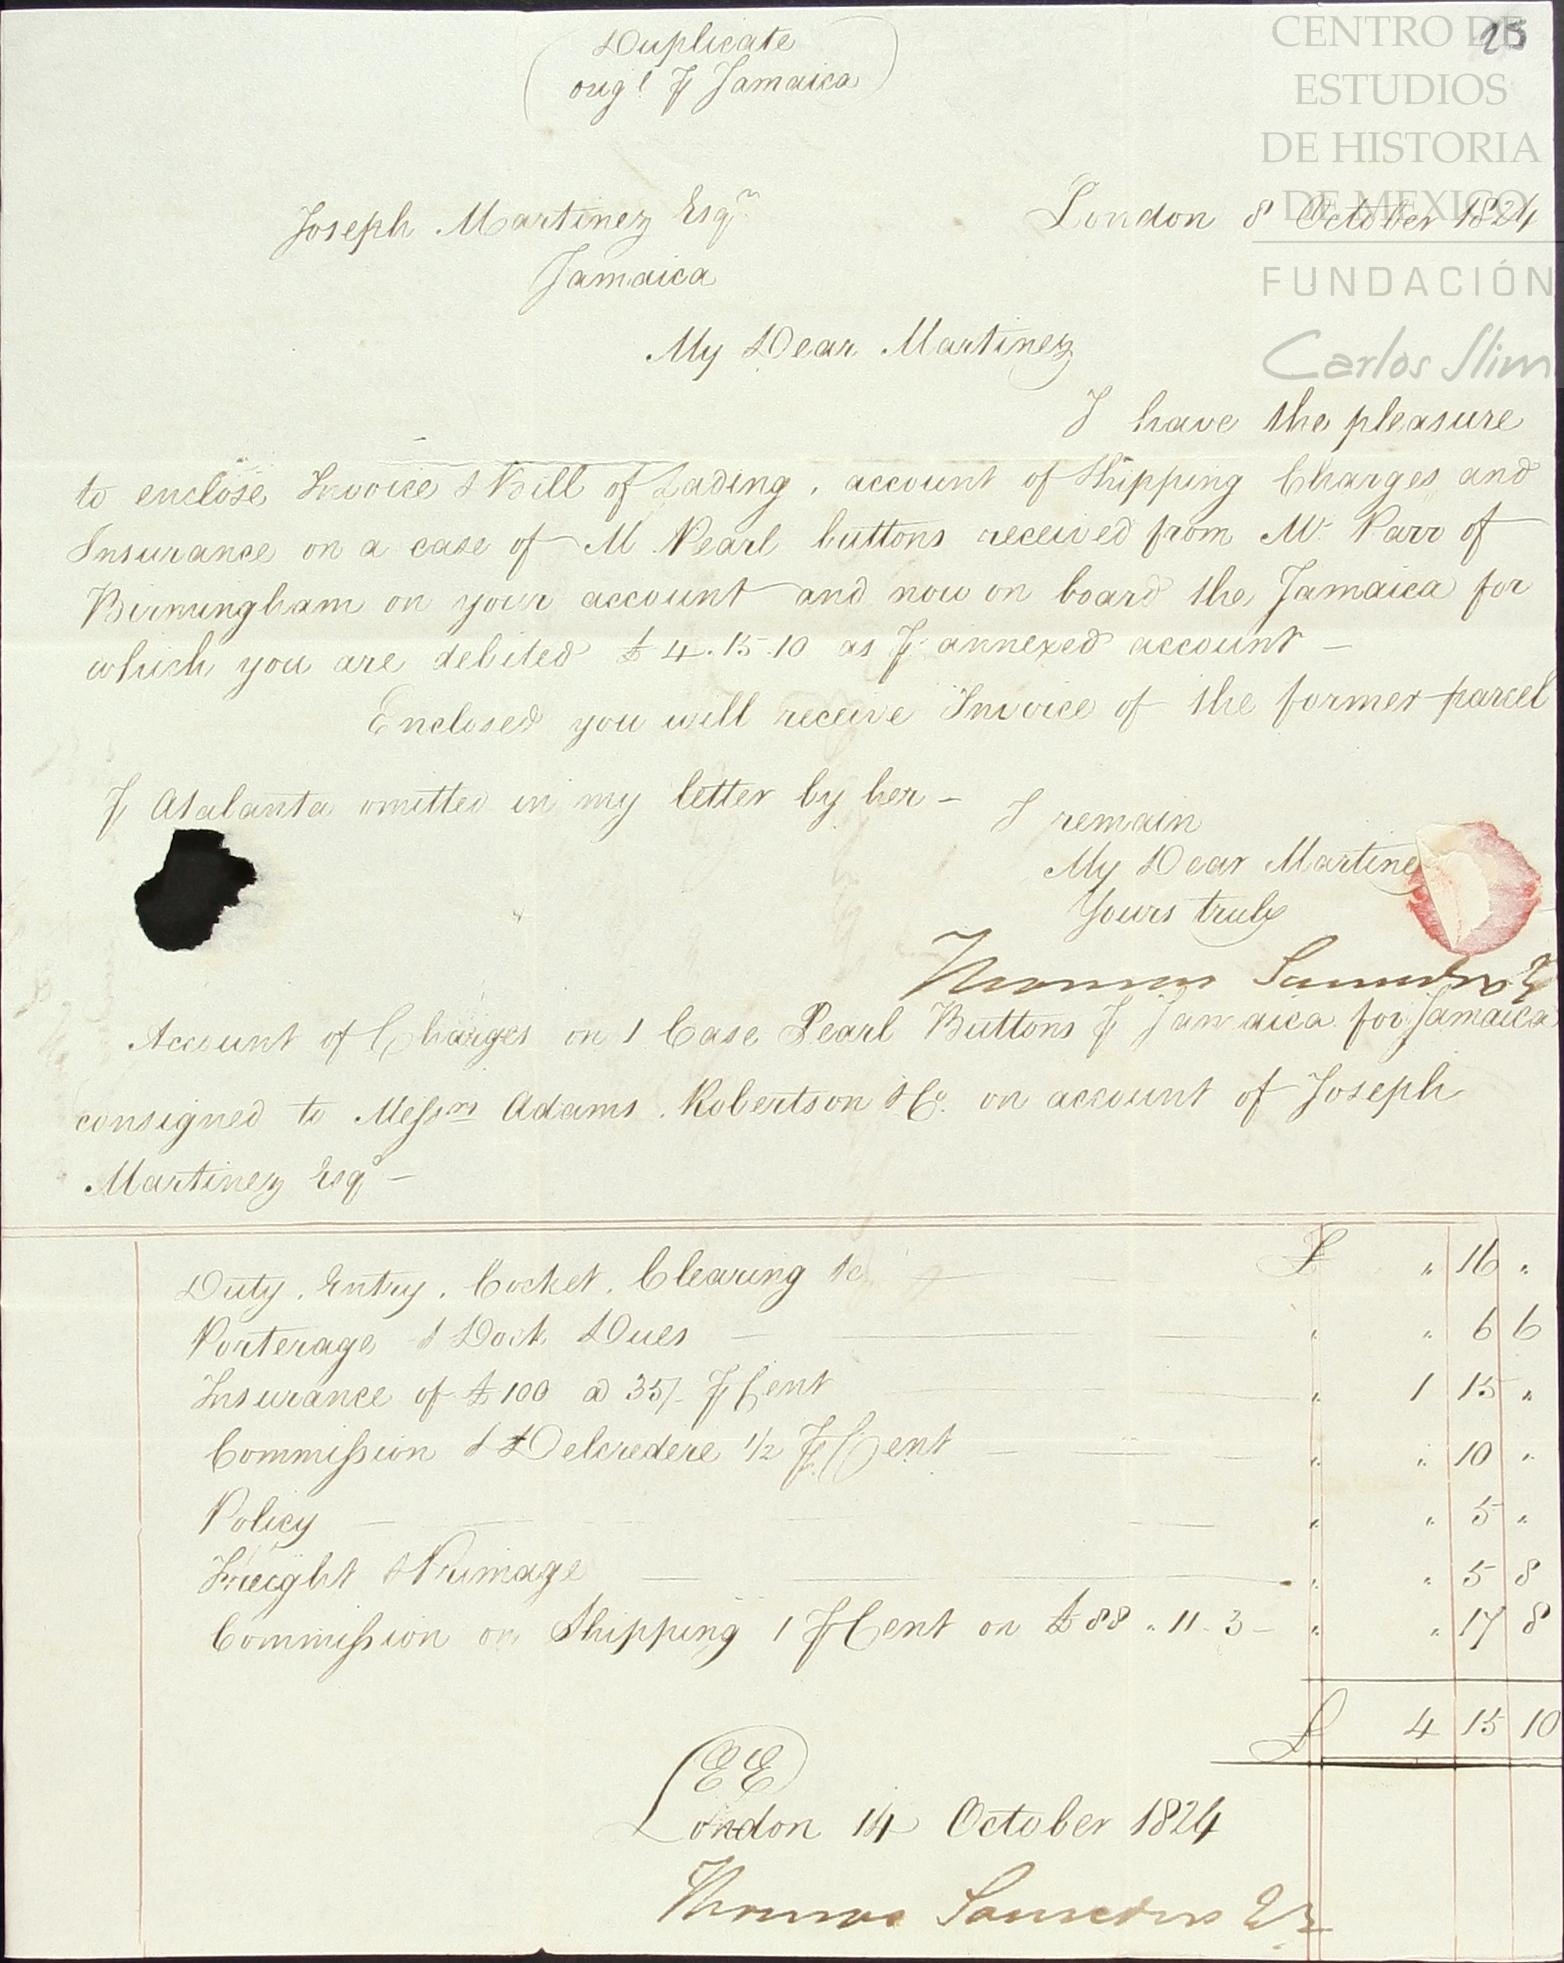 Duplicate
origl. ⅌ Jamaica
25
CENTRO DE
ESTUDIOS
DE HISTORIA
DE MEXICO
FUNDACIÓN
Carlos Slim
Joseph Martinez Esqr
London 8 October 1824
Jamaica
My Dear Martinez
I have the pleasure
to enclose Invoice & Bill of Lading, account of Shipping Charges and
Insurance on a case of M Pearl buttons received from Mr. Parr of
Birmingham on your account and now on board the Jamaica for
which you are debited £4.15.10 as ⅌ annexed account —
Enclosed you will receive Invoice of the former parcel
⅌ Atalanta omitted in my letter by her —
I remain
My Dear Martine
Yours truly
Thomas Saunders
Account of Charges on 1 Case Pearl Buttons ⅌ Jamaica for Jamaica
consigned to Messrs Adams, Robertson & Co. on account of Joseph
Martinez Esqr —
Duty, Entry, Cocket, Clearing &c £ " 16 "
Porterage & Dock Dues — " " 6 6
Insurance of £100 @ 35/- ⅌ Cent " 1 15 "
Commission & Delcredere 1/2 ⅌ Cent — " " 10 "
Policy — " " 5 "
Freight & Primage — " " 5 8
Commission on Shipping 1 ⅌ Cent on £88 . 11 . 3 — " " 17 8
£ 4 15 10
EE
London 14 October 1824
Thomas Saunders